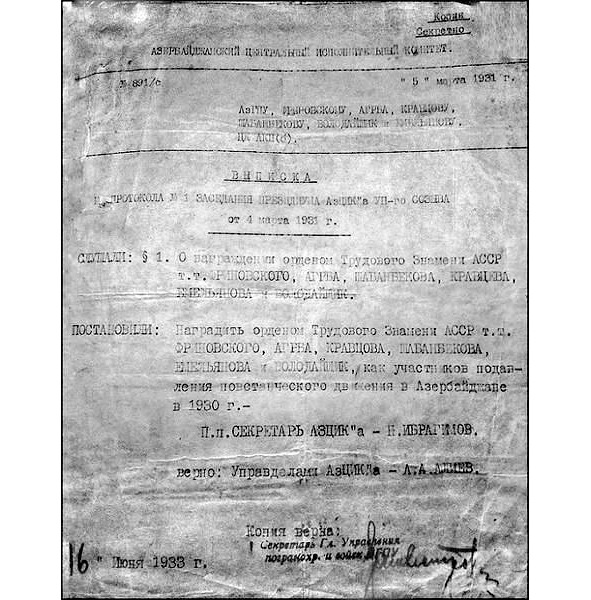 Копия
Секретно
АЗЕРБАЙДЖАНСКИЙ ЦЕНТРАЛЬНЫЙ ИСПОЛНИТЕЛЬНЫЙ КОМИТЕТ.
№ 891/с " 5 " марта 1931 г.
АзГПУ, ФРИНОВСКОМУ, АГРБА, КРАВЦОВУ,
ШАБАНБЕКОВУ, ВОЛОДАЙЩИК и ЕМЕЛЬЯНОВУ.
ЦК АКП(б).
ВЫПИСКА
из ПРОТОКОЛА № 1 ЗАСЕДАНИЯ ПРЕЗИДИУМА АзЦИК"а УП-го СОЗЫВА
от 4 марта 1931 г.
СЛУШАЛИ: § 1. О награждении орденом Трудового Знамени АССР
т.т. ФРИНОВСКОГО, АГРБА, ШАБАНБЕКОВА, КРАВЦЕВА,
ЕМЕЛЬЯНОВА и ВОЛОДАЙЩИК.
ПОСТАНОВИЛИ: Наградить орденом Трудового Знамени АССР т.т.
ФРИНОВСКОГО, АГРБА, КРАВЦОВА, ШАБАНБЕКОВА,
ЕМЕЛЬЯНОВА и ВОЛОДАЙЩИК, как участников подав-
ления повстанческого движения в Азербайджане
в 1930 г.-
П.п.СЕКРЕТАРЬ АЗЦИК"а - Н.ИБРАГИМОВ.
верно: Управделами АзЦИКДа - А.А.АЛИЕВ.
Копия верна:
Секретарь Гл. Управления
погранохр. и войск ОГПУ
16 " Июня 1933 г.